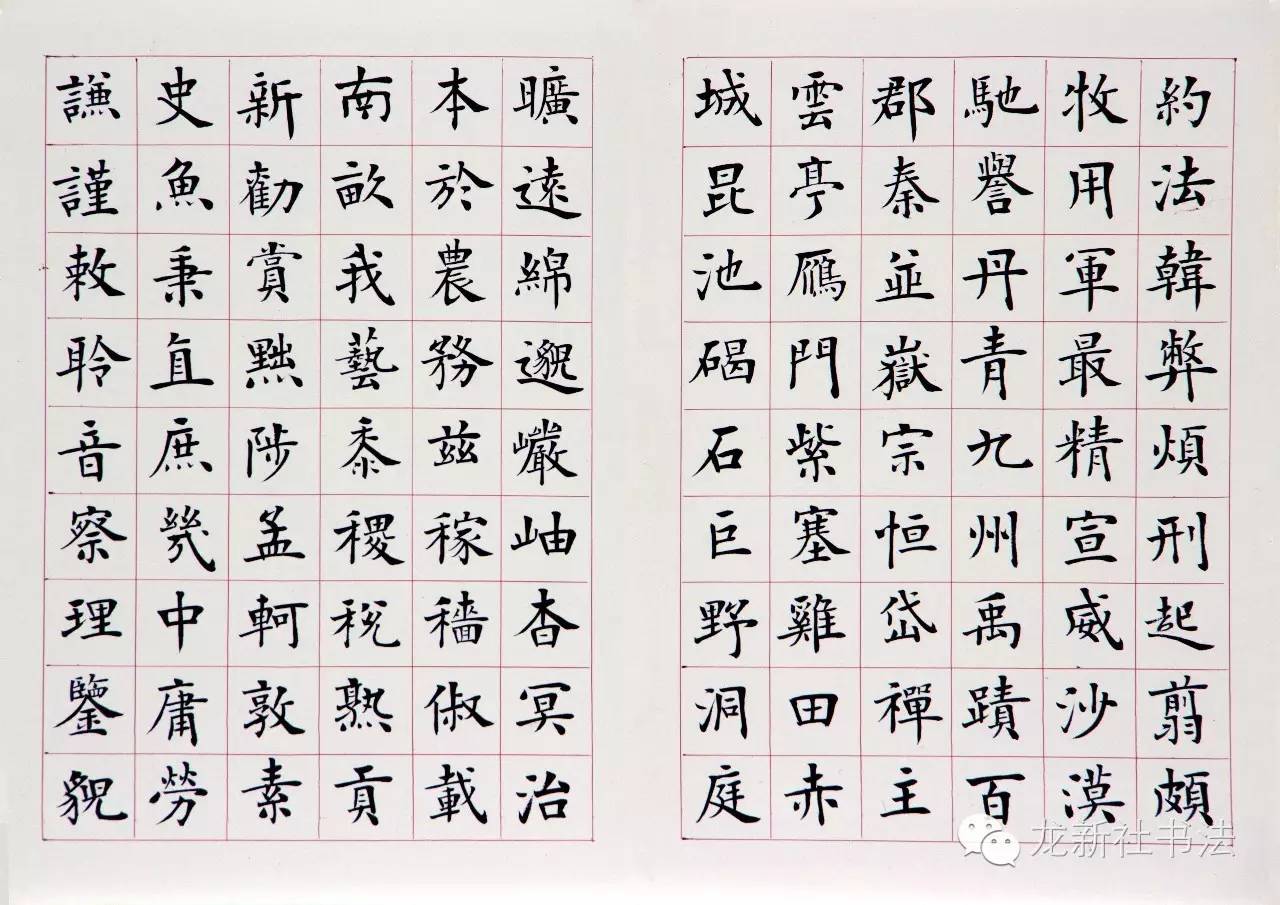 約法韓弊煩刑起翦頗
牧用軍最精宣威沙漠
馳譽丹青九州禹蹟百
郡秦並嶽宗恒岱禪主
雲亭鴈門紫塞雞田赤
城昆池碣石巨野洞庭
曠遠綿邈巖岫杳冥治
本於農務茲稼穡俶載
南畝我藝黍稷稅熟貢
新勸賞黜陟孟軻敦素
史魚秉直庶幾中庸勞
謙謹敕聆音察理鑒貌
龙新社书法